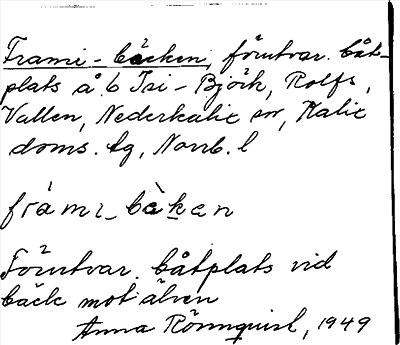 Frami-bäcken, förutvar. båt-
plats å b Tri-Björk, Rolfs,
Vallen, Nederkalix sn, Kalix
doms. tg, Norrb. l
frami_bäken
Förutvar. båtplats vid
bäck mot älven
Anna Rönnquist, 1949